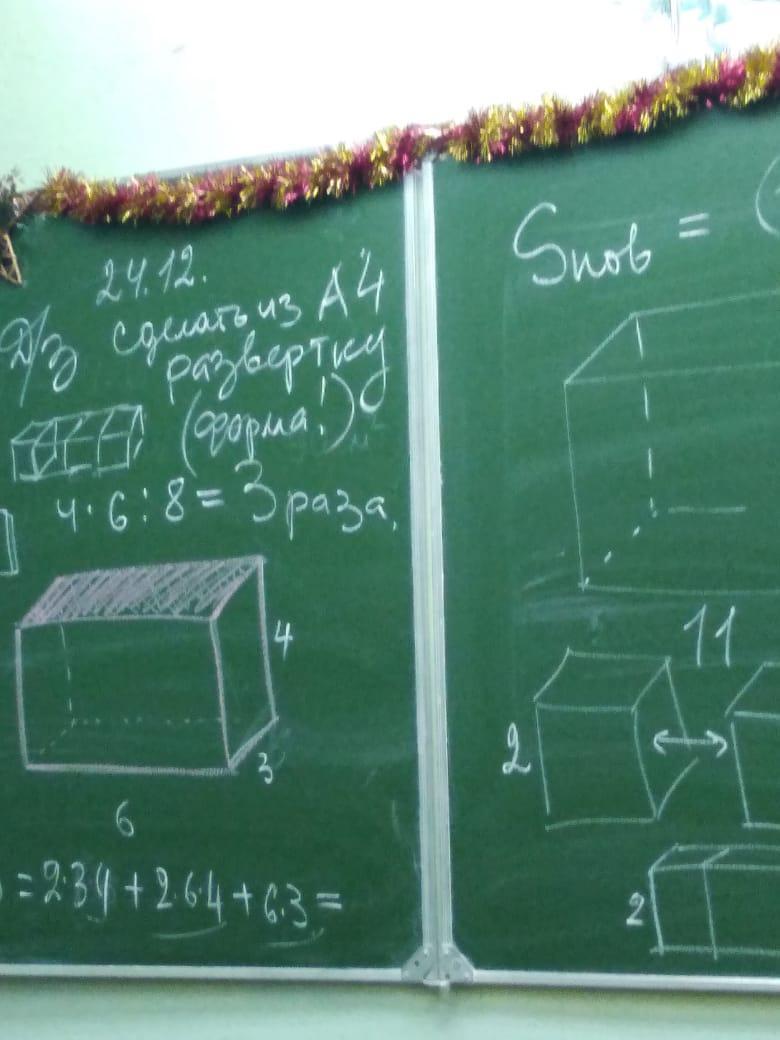 24.12.
Д/З сделать из А4
развертку
(форма!)
4·6:8=3 раза.
4
3
6
=2·3·4+2·6·4+6·3=
Sпов = (
11
2
2